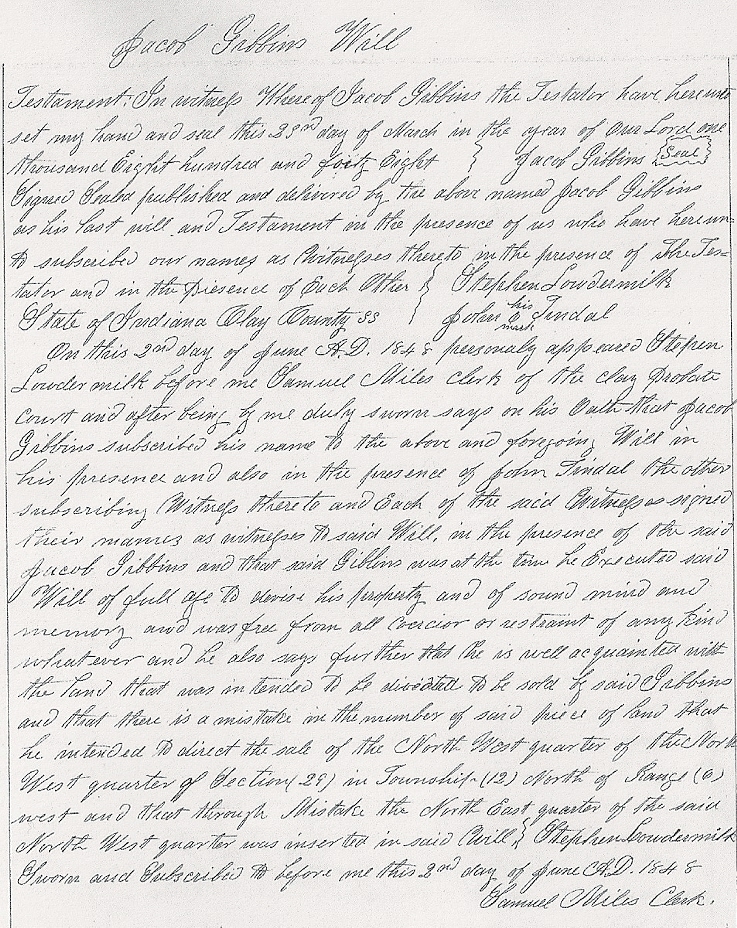 Jacob Gibbins Will
Testament; In witness Whereof Jacob Gibbins the Testator have hereunto
set my hand and seal this 23nd day of March in the year of Our Lord one
thousand Eight hundred and forty Eight } Jacob Gibbins {Seal}
Signed Seald published and delivered by the above named Jacob Gibbins
as his last will and Testament in the presence of us who have hereun-
to subscribed our names as Witnesses thereto in the presence of The Tes-
tator and in the presence of Each Other } Stephen Lowdermilk
State of Indiana Clay County SS } John his mark Tindal
On this 2nd day of June A.D. 1848 personaly appeared Stephen
Lowdermilk before me Samuel Miles Clerk of the clay probate
court and after being by me duly sworn says on his Oath that Jacob
Gibbins subscribed his name to the above and foregoing Will in
his presence and also in the presence of John Tindal the other
subscribing Witness thereto and Each of the said Witnesses signed
their names as witnesses to said Will, in the presence of the said
Jacob Gibbins and that said Gibbins was at the time he Executed said
Will of full age to devise his property and of sound mind and
memory and was free from all coercion or restraint of any kind
whatever and he also says further that he is well acquainted with
the land that was intended to be to be sold by said Gibbins
and that there is a mistake in the number of said piece of land that
he intended to direct the sale of the North West quarter of the North
West quarter of Section (29) in Township (12) North of Range (6)
west and that through Mistake the North East quarter of the said
North West quarter was inserted in said Will } Stephen Lowdermilk
Sworn and Subscribed to before me this 2nd day of June A.D. 1848
Samuel Miles Clerk.